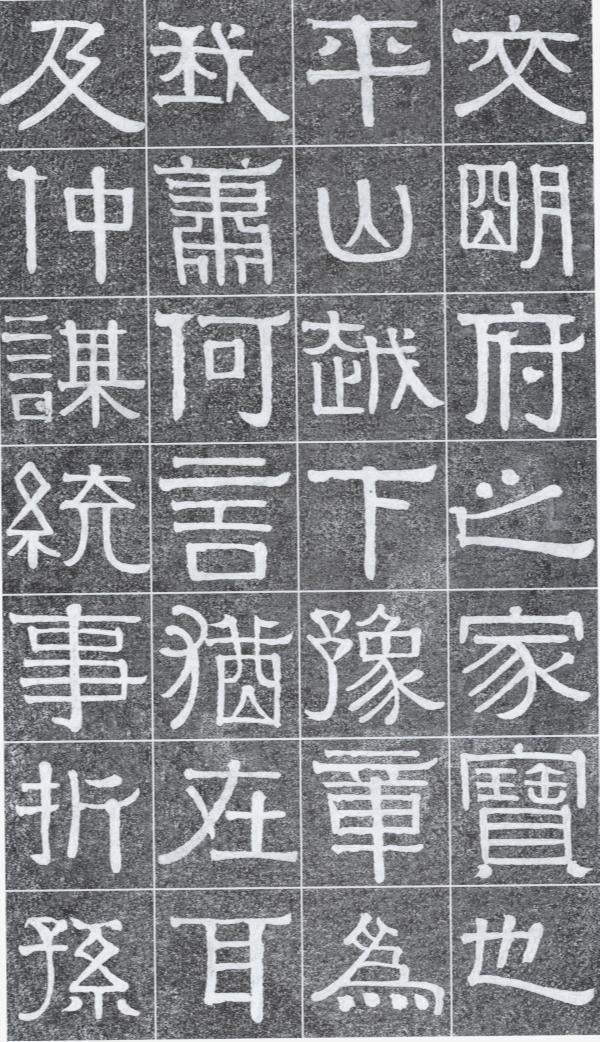 文朙府之家寶也
平山越下豫章為
我蕭何言猶在耳
及仲謀統事折孫